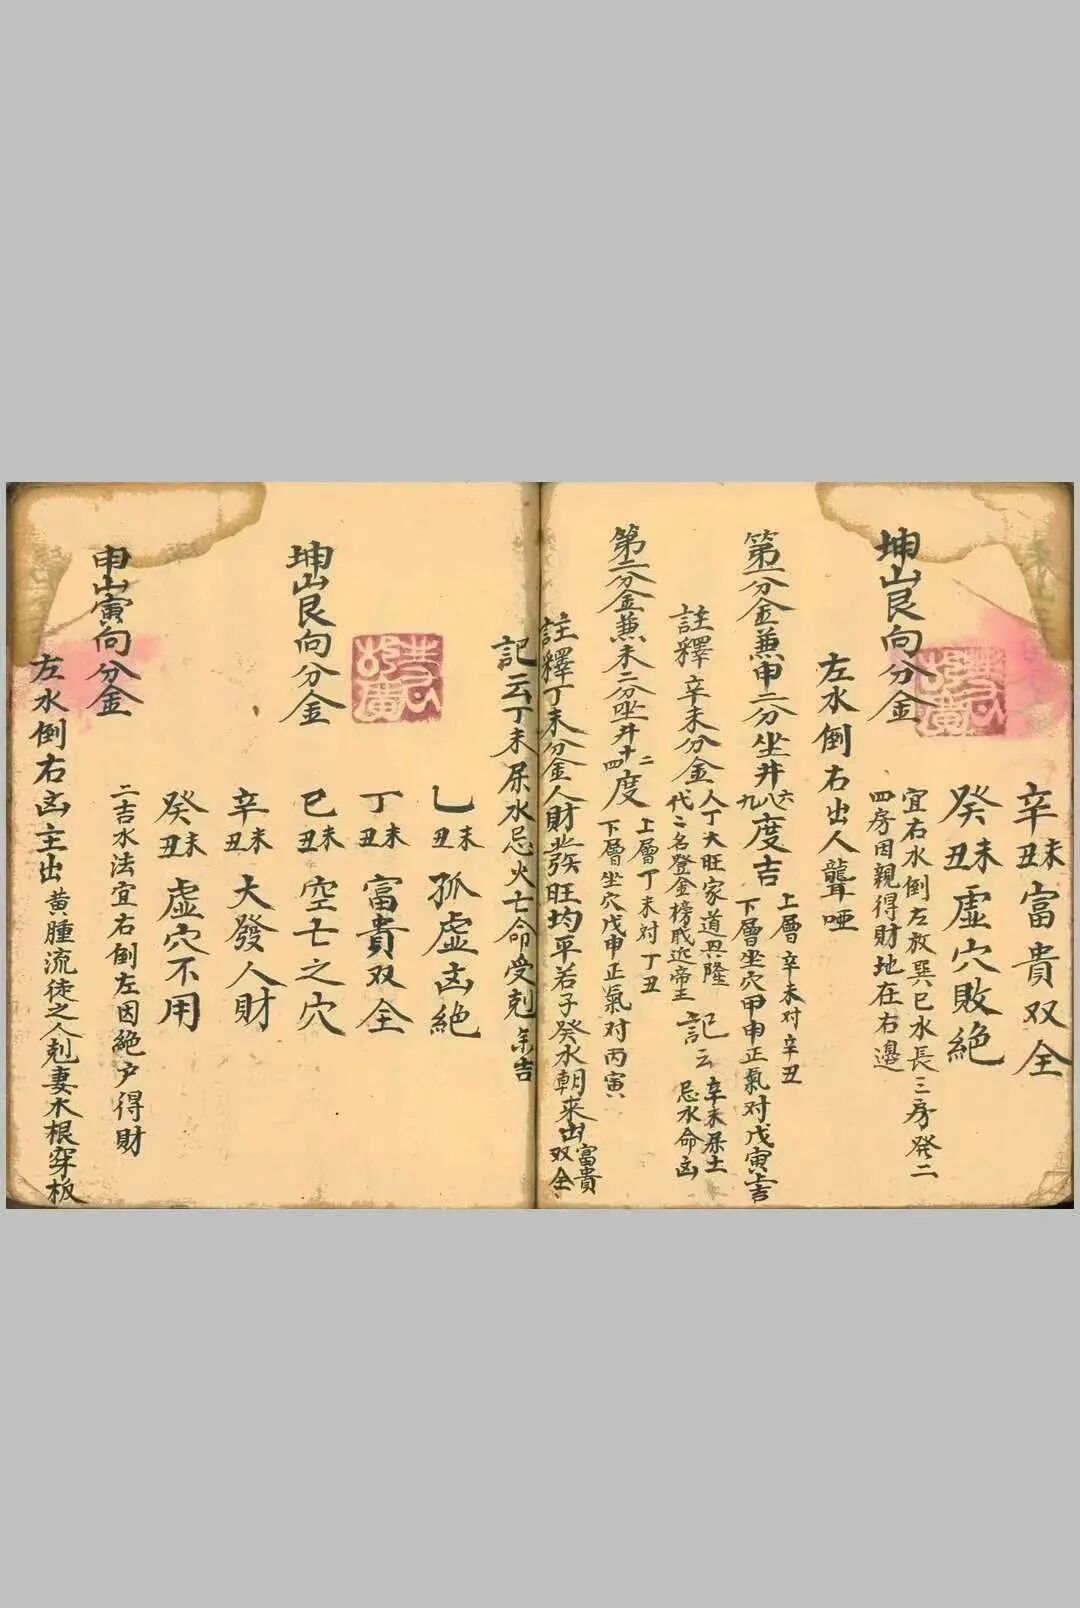 辛丑未富貴双全
癸丑未虛穴敗絕
坤山艮向分金
宜右水倒左放巽巳水長三房發二
四房因親得財地在右邊
左水倒右出人聾啞
第一分金兼申二分坐井八六九度吉
上層辛未对辛丑
下層坐穴甲申正氣对戊寅上吉
註釋辛未分金
人丁大旺家道興隆
代二名登金榜戝近帝主
記云
辛未屎土
忌水命凶
第二分金兼未二分坐井十二四度
上層丁未对丁丑
下層坐穴戊申正氣对丙寅
註釋丁未分金人財發旺均平若子癸水朝来出富貴双全
記云丁未屎水忌火亡命受剋余吉
乙丑未孤虛凶絕
丁丑未富貴双全
坤山艮向分金
己丑未空亡之穴
辛丑未大發人財
癸丑未虛穴不用
申山寅向分金
二吉水法宜右倒左因絕户得財
左水倒右凶主出黄腫流徒之人剋妻木根穿板